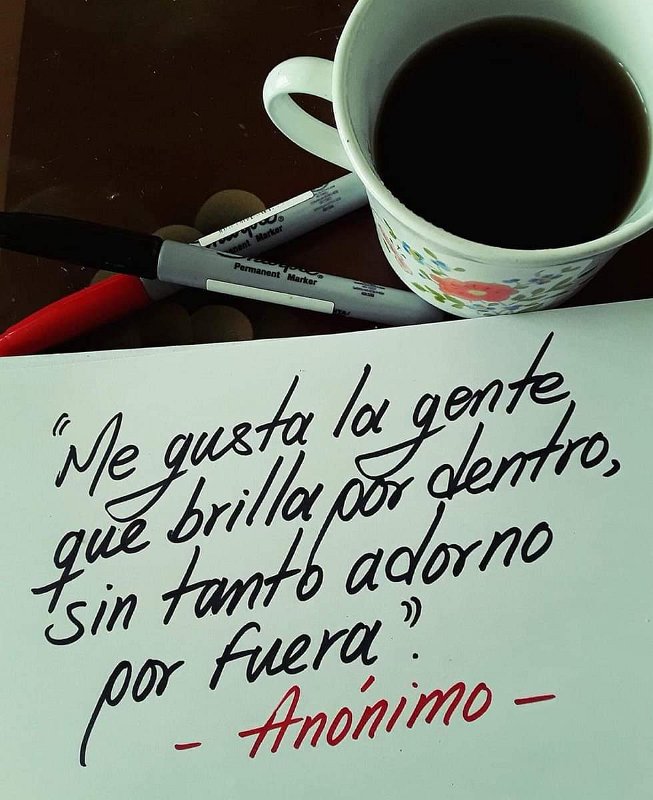 Sharpie®
Permanent Marker
Sharpie
Permanent Marker
“Me gusta la gente
que brilla por dentro,
sin tanto adorno
por fuera”.
- Anónimo -